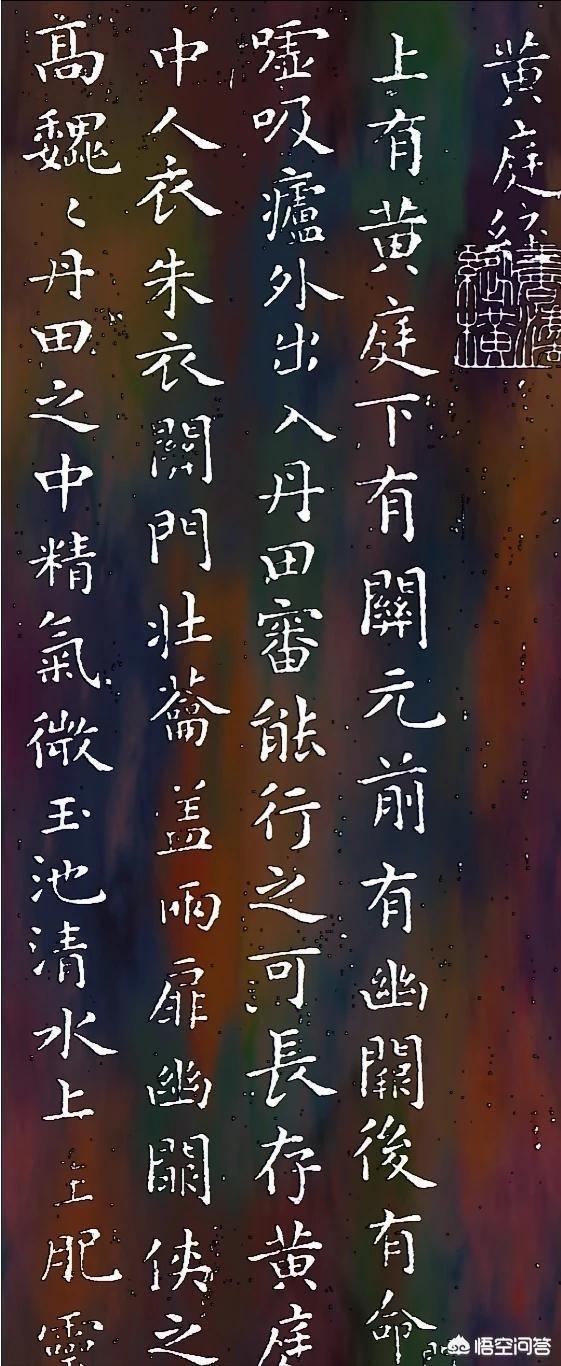 黄庭經
上有黄庭下有關元前有幽闕後有命
嘘吸廬外出入丹田審能行之可長存黄庭
中人衣朱衣關門壮蘥盖兩扉幽闕侠之
高魏〻丹田之中精氣微玉池清水上生肥靈
悟空问答